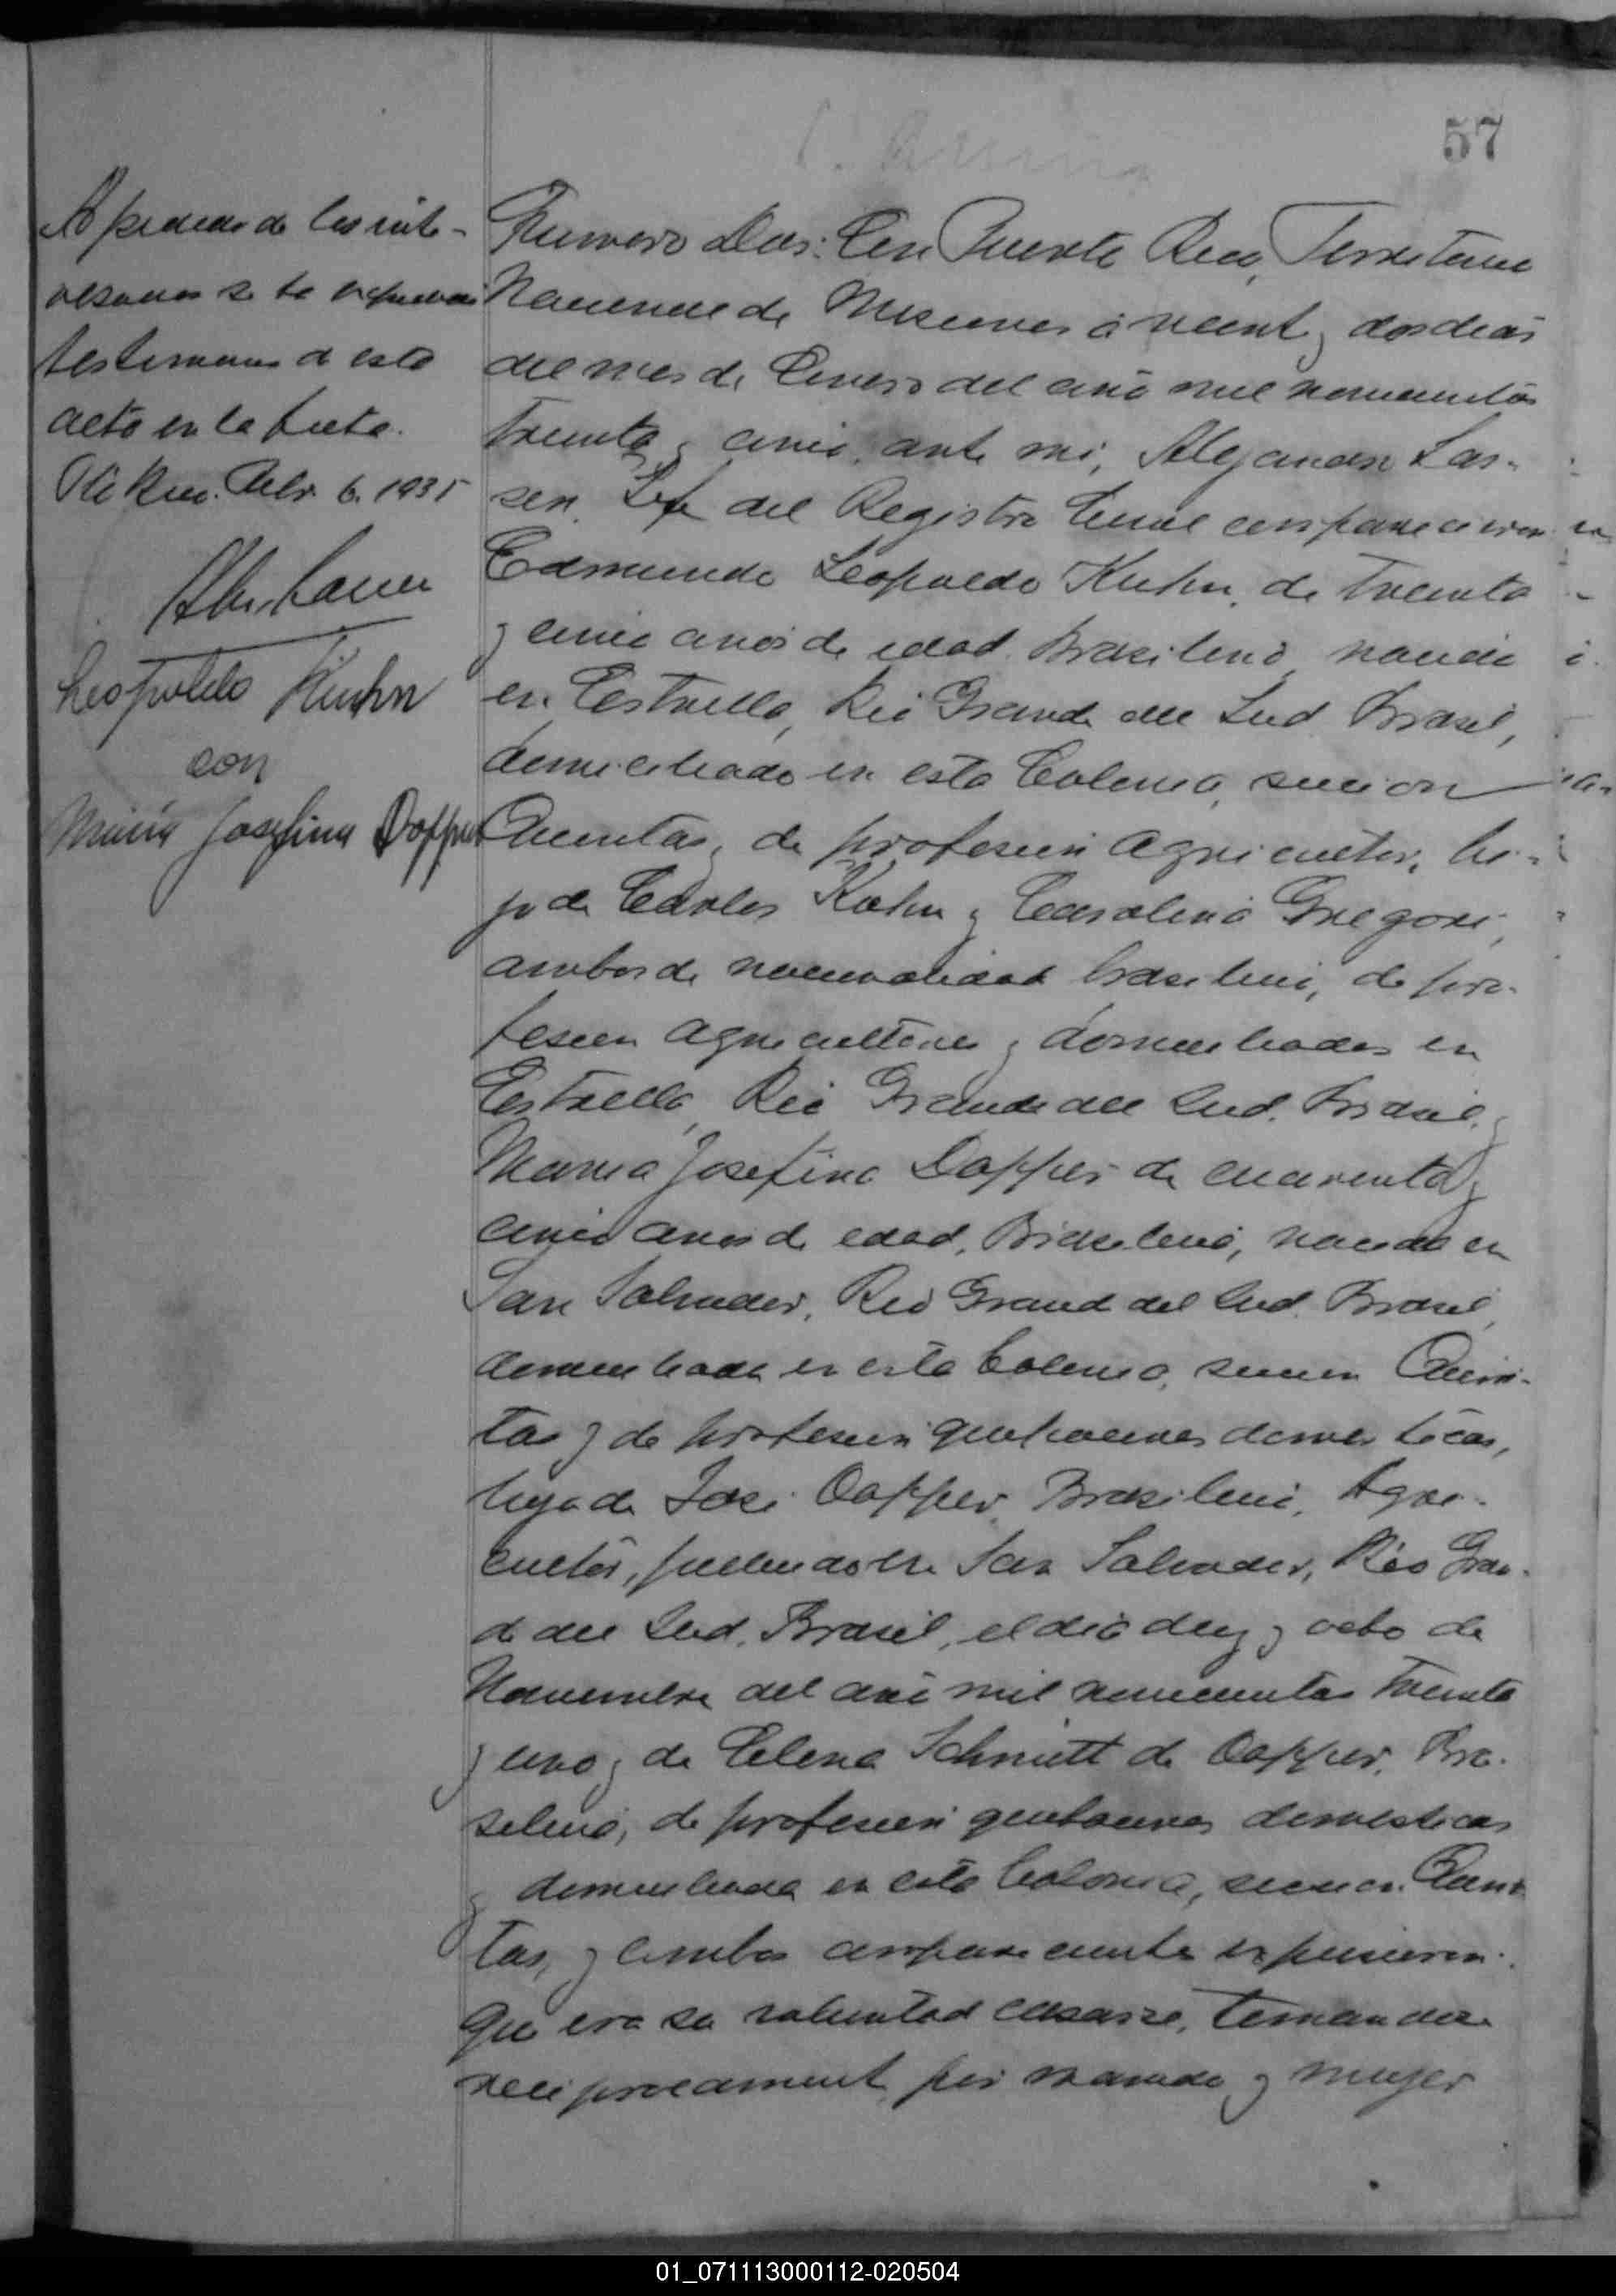 57
A pedido de los inte-
resados se ha expedido
testimonio de esta
acta en la fecha.
Pto Rico. Febr. 6. 1935
Leopoldo Kuhn
con
María Josefina Dopper
Numero Dos: En Puerto Rico, Territorio
Nacional de Misiones á veinte y dos dias
del mes de Enero del año mil novecientos
treinta y cinco, ante mi, Alejandro Lar-
sen, Jefe del Registro Civil comparecieron
Edmundo Leopoldo Kuhn, de treinta
y cinco años de edad, Brasileño, nacido
en Estrella, Rio Grande del Sud, Brasil,
domiciliado en esta Colonia, seccion
Cuentas, de profesion agricultor, hi-
jo de Carlos Kuhn y Carolina Gregori,
ambos de nacionalidad brasileña, de pro-
fesion agricultores y domiciliados en
Estrella, Rio Grande del Sud, Brasil, y
Maria Josefina Dapper de cuarenta y
cinco años de edad, Brasileña, nacida en
San Salvador, Rio Grande del Sud, Brasil,
domiciliada en esta Colonia, seccion
y de profesion quehaceres domesticos,
hija de José Dapper, Brasileño, Agri-
cultor, fallecido en San Salvador, Rio Gran-
de del Sud, Brasil, el dia diez y ocho de
Noviembre del año mil novecientos treinta
y uno y de Elena Schmitt de Dapper, Bra-
sileña, de profesion quehaceres domesticos
y domiciliada en esta Colonia, seccion
y ambos comparecientes expusieron:
Que era su voluntad casarse, tomandose
reciprocamente por marido y mujer
01_071113000112-020504